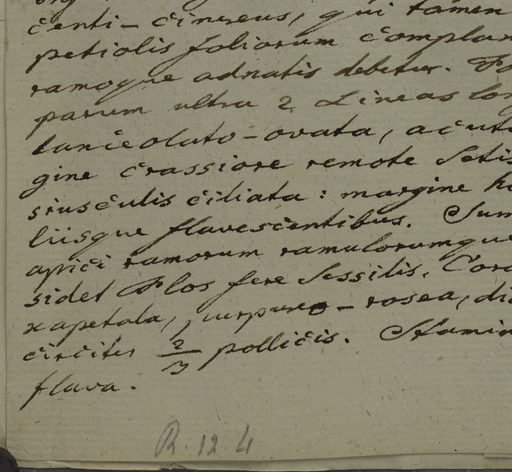 centi-cinereus, qui tamen
petiolis foliorum complan
ramoque adnatis debetur. Fo
parum ultra 2 Lineas lon
lanceolato-ovata, acuta
gine crassiore remote Setis
siusculis ciliata: margine
liisque flavescentibus. Sum
apici ramorum ramulorumque
sidet Flos fere Sessilis. Coro
xapetala, purpureo-rosea, di
circiter 2/3 pollicis. Stamin
flava.
R. 12. 4